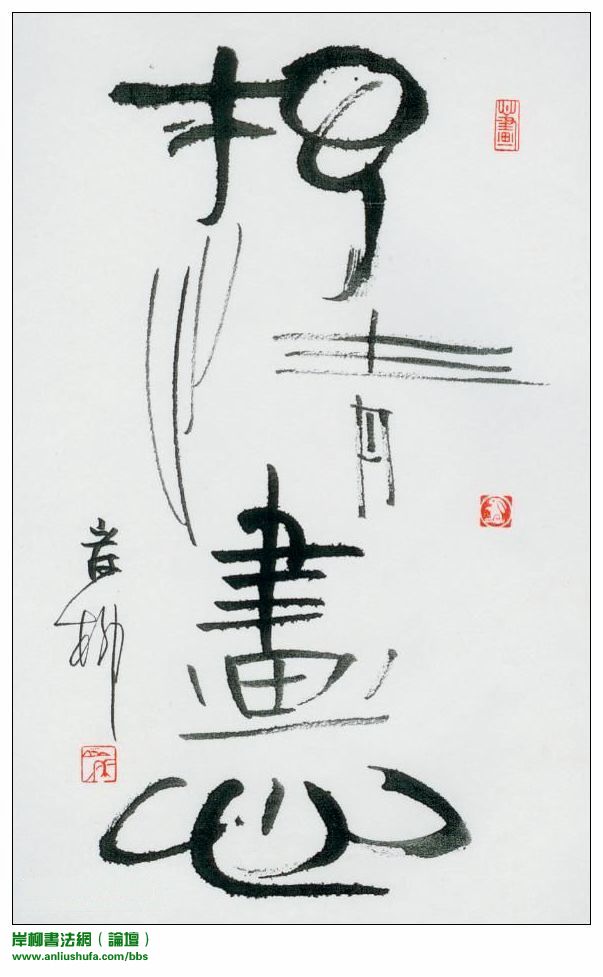 抒
情
畫
心
岸柳
心畫
岸柳書法網（論壇）
www.anliushufa.com/bbs